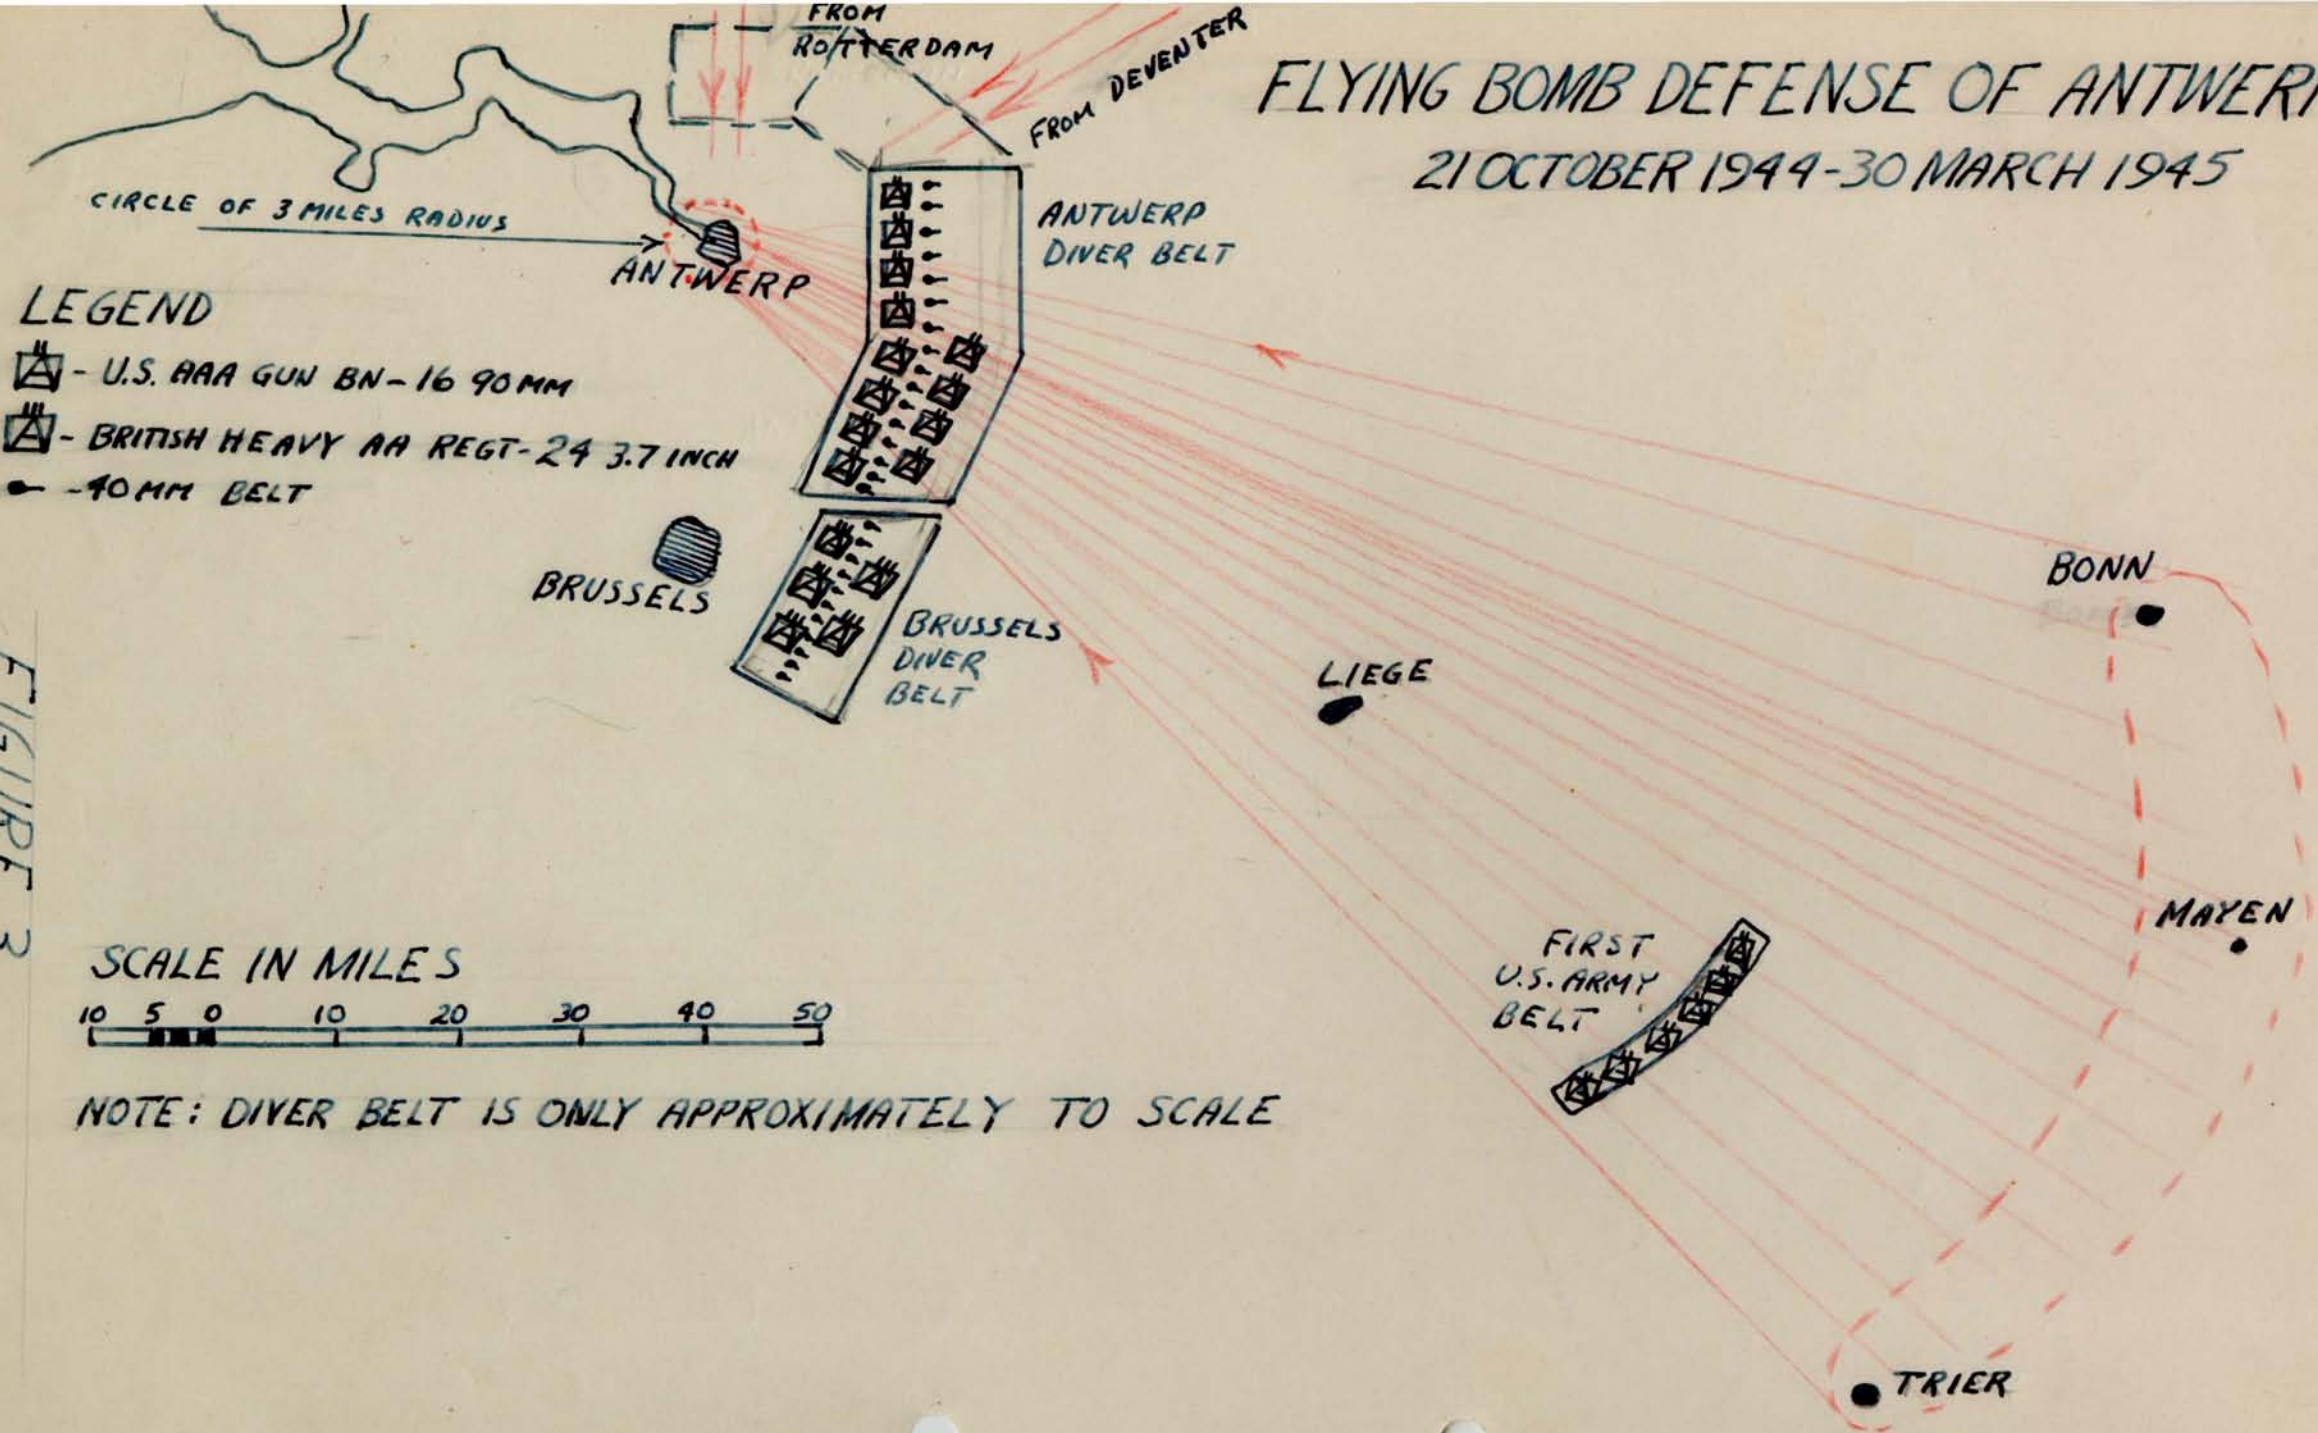 FROM
ROTTERDAM
FROM DEVENTER
FLYING BOMB DEFENSE OF ANTWERP
21 OCTOBER 1944-30 MARCH 1945
CIRCLE OF 3 MILES RADIUS
ANTWERP
ANTWERP
DIVER BELT
LEGEND
- U.S. AAA GUN BN-16 90MM
- BRITISH HEAVY AA REGT-24 3.7 INCH
-40MM BELT
BRUSSELS
BRUSSELS
DIVER
BELT
LIEGE
BONN
MAYEN
FIRST
U.S. ARMY
BELT
TRIER
SCALE IN MILES
10 5 0 10 20 30 40 50
NOTE: DIVER BELT IS ONLY APPROXIMATELY TO SCALE
FIGURE 3